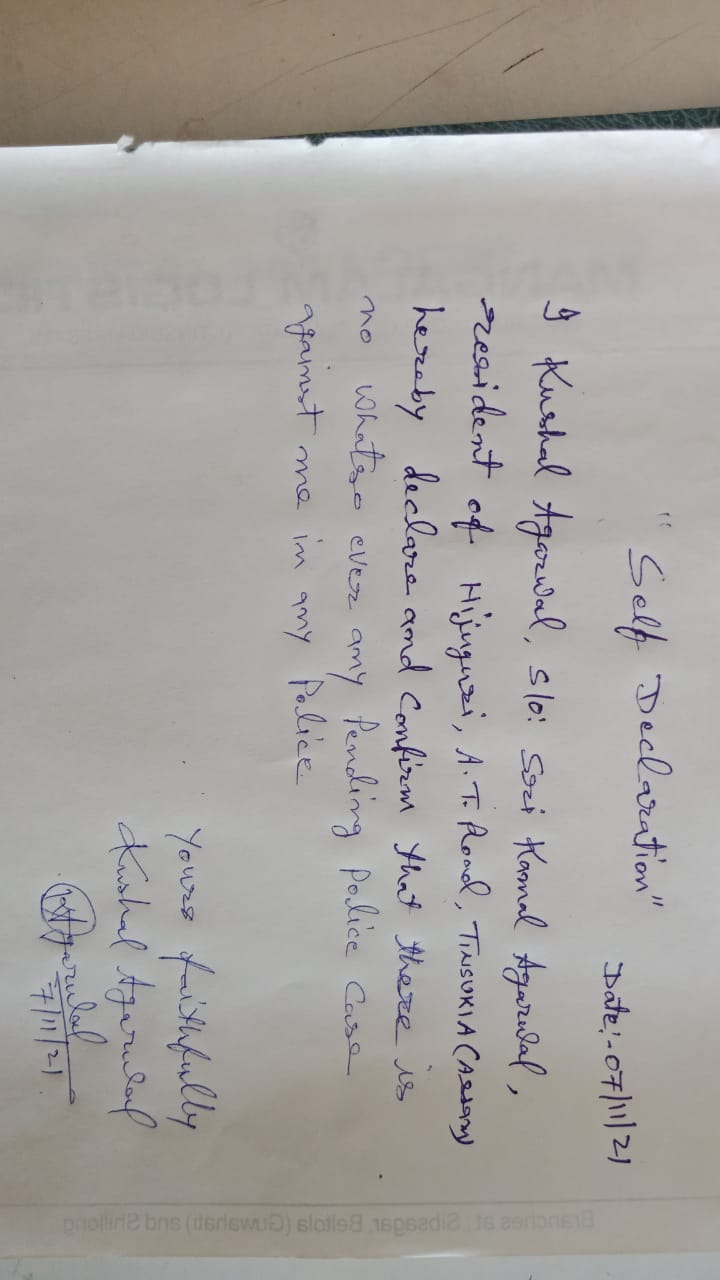 "Self Declaration"
Date:- 07/11/21
I Kushal Agarwal, S/o: Sri Kamal Agarwal,
resident of Hijuguri, A.T. Road, TINSUKIA (Assam)
hereby declare and confirm that there is
no whatso ever any Pending Police Case
against me in any Police
Yours faithfully
Kushal Agarwal
Agarwal
7/11/21
MANGALAM LOGISTIC
Branches at : Sibsagar, Beltola (Guwahati) and Shillong